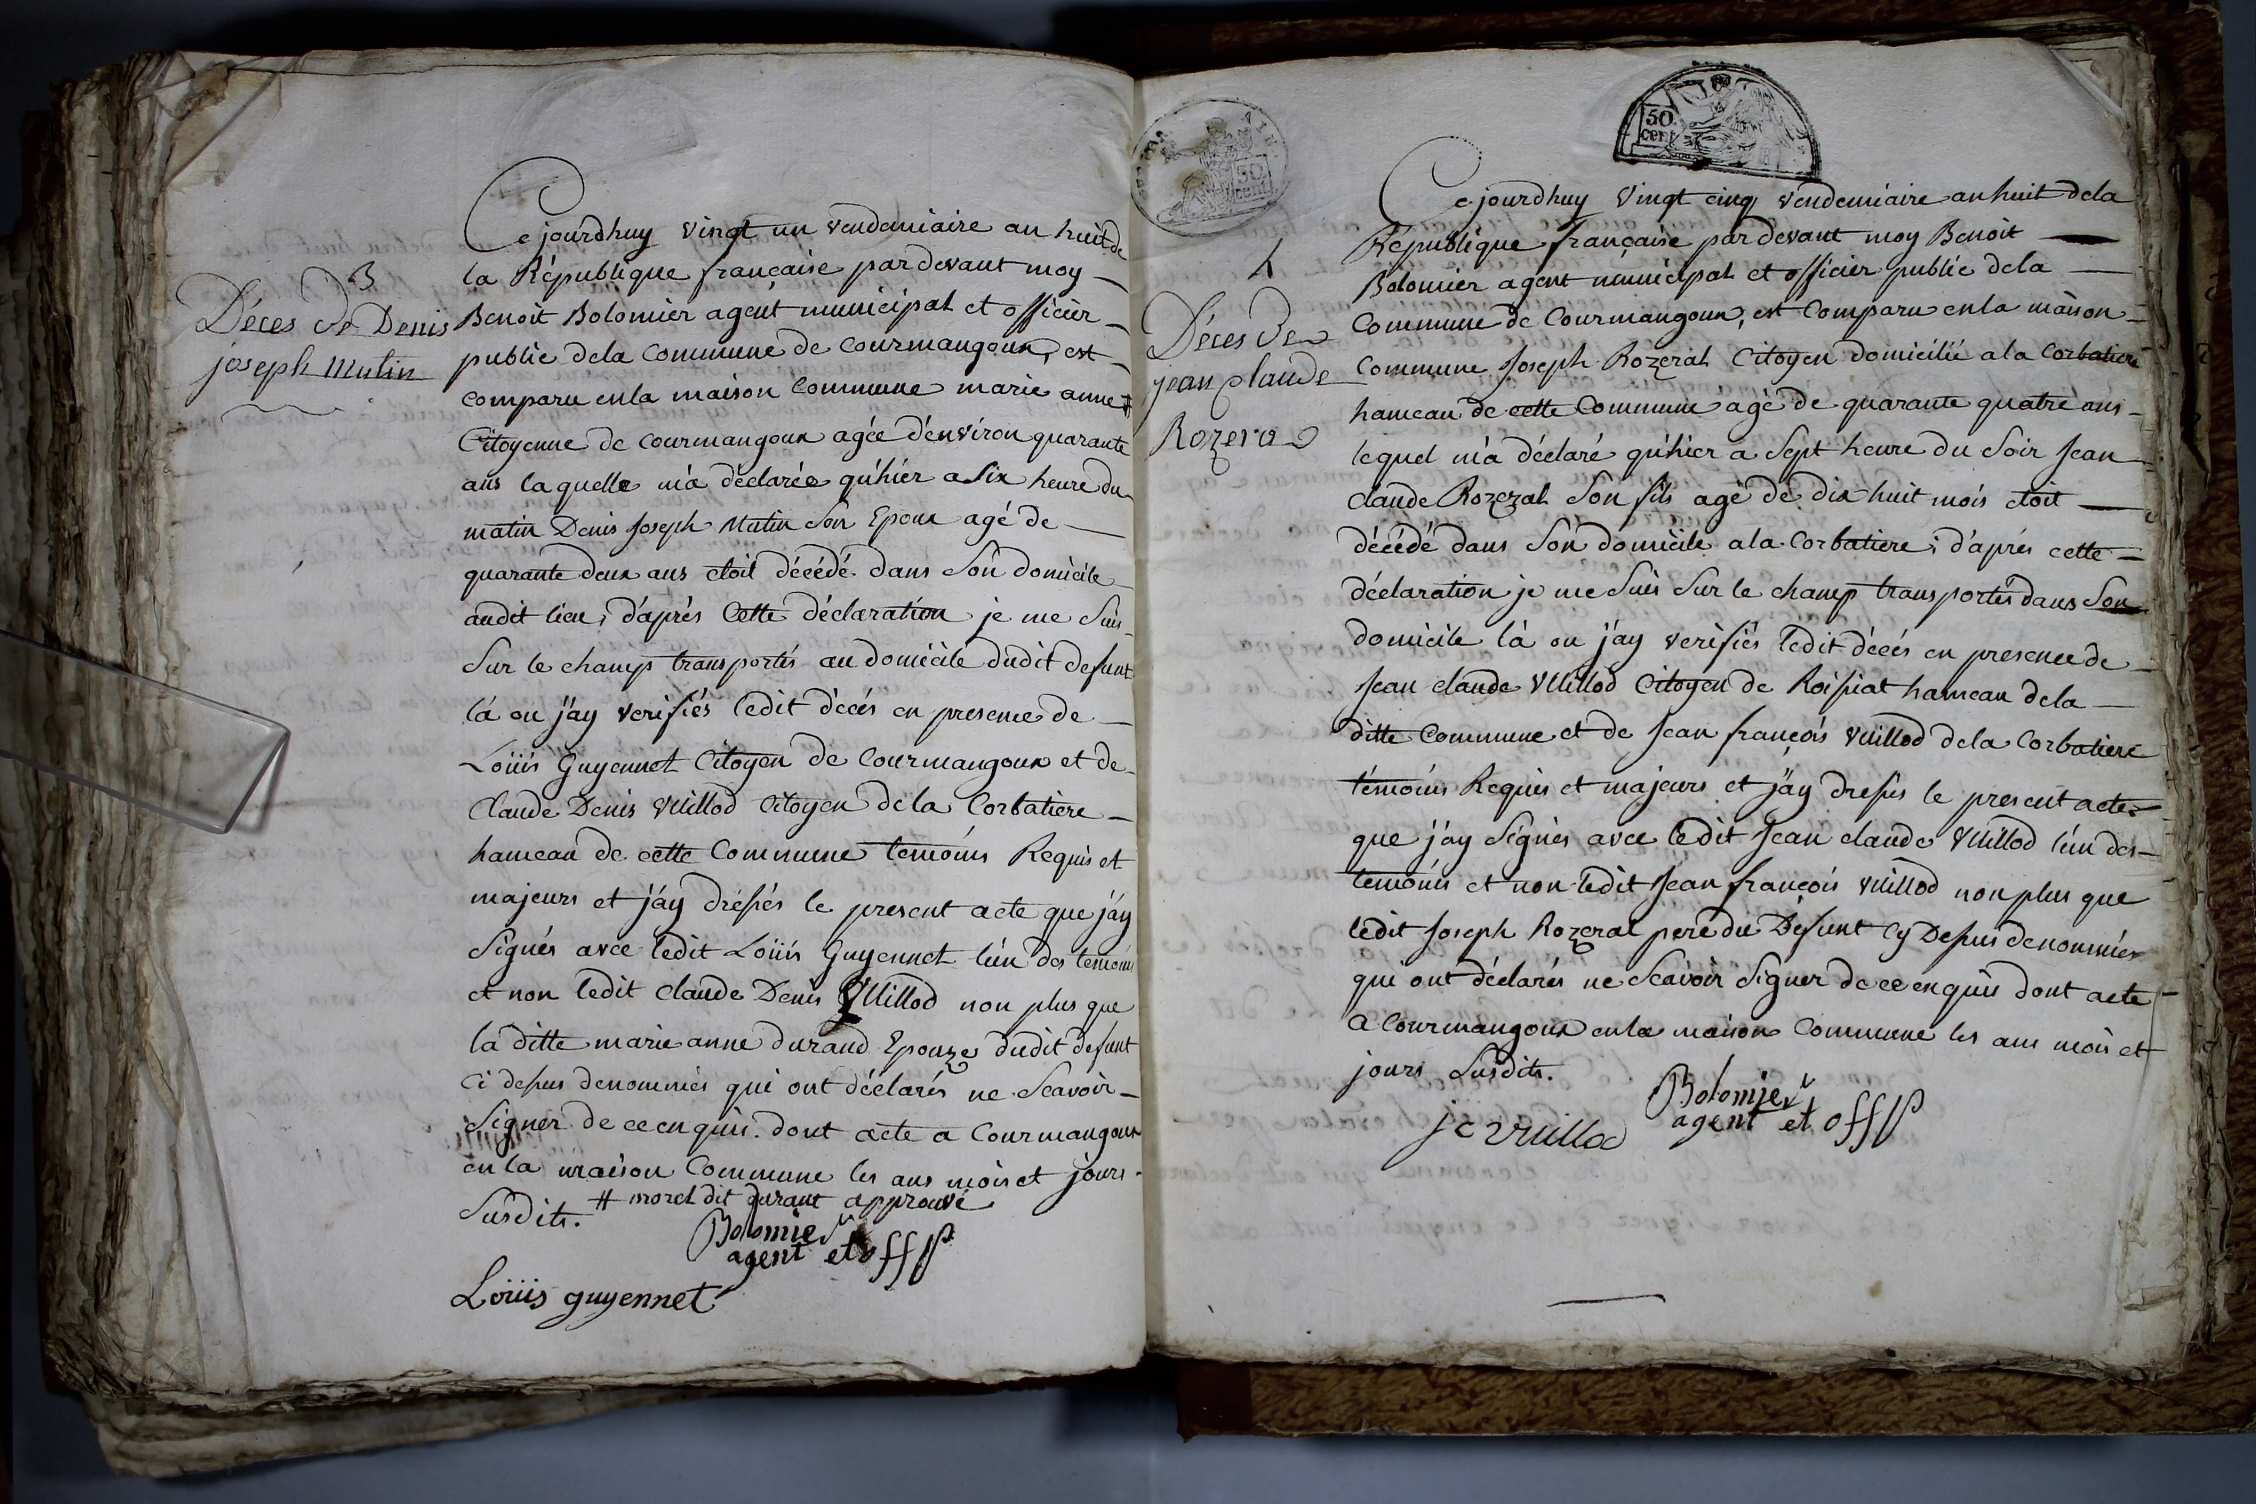 3
Déces de Denis
joseph Mutin
Cejourdhuy vingt un vendemiaire an huit de
la République française pardevant moy
Benoit Bolomier agent municipal et officier
public dela Commune de Courmangoux, est
comparu enla maison Commune marie anne #
Citoyenne de Courmangoux agée d'environ quarante
ans laquelle m'a déclarée qu'hier a Six heure du
matin Denis Joseph Mutin Son Epoux agé de
quarante deux ans etoit décédé dans Son domicile
audit lieu; d'aprés Cette déclaration je me Suis
Sur le champ transportés au domicile dudit defunt
là ou j'ay verifiés ledit décés en presence de
Loüis Guyennet Citoyen de Courmangoux et de
Claude Denis Vuillod Citoyen dela Corbatiere
hameau de cette Commune temoins Requis et
majeurs et j'ay dressés le present acte que j'ay
Signés avec ledit Loüis Guyennet l'un des temoins
et non ledit Claude Denis Vuillod non plus que
la ditte marie anne durand Epouze dudit defunt
Ci dessus denommés qui ont déclarés ne Scavoir
Signer de ce enquis. dont acte a Courmangoux
en la maison Commune les ans mois et jours
Susdits. # morel dit durant approuvé
Bolomier
agent et off p
Loüis guyennet
50
cent
50
cent
4
Déces de
jean claude
Rozera
Cejourdhuy vingt cinq vendemiaire an huit dela
République française par devant moy Benoit
Bolomier agent municipal et officier public dela
Commune de Courmangoux, est Comparu enla maison
Commune Joseph Rozerat Citoyen domicilié ala Corbatiere
hameau de cette Commune agé de quarante quatre ans
lequel m'a déclaré qu'hier a Sept heure du Soir Jean
claude Rozerat Son fils agé de dix huit mois etoit
décédé dans Son domicile ala Corbatiere; d'aprés cette
déclaration je me Suis Sur le champ transportés dans Son
domicile là ou j'ay verifiés ledit décés en presence de
Jean claude Vuillod Citoyen de Roissiat hameau dela
ditte Commune et de Jean françois Vuillod dela Corbatiere
témoins Requis et majeurs et j'ay dressés le present acte
que j'ay Signés avec ledit Jean claude Vuillod l'un des
temoins et non ledit Jean françois Vuillod non plus que
ledit Joseph Rozerat pere du Défunt Cy Dessus denommés
qui ont déclarés ne Scavoir Signer de ce enquis dont acte
a Courmangoux enla maison Commune les ans mois et
jours Susdits.
Bolomier
agent et off p
jc vuillod